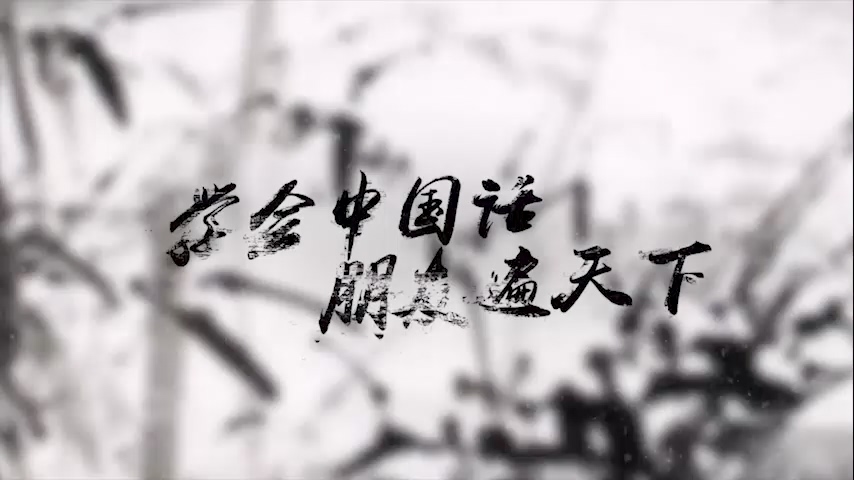 学会中国话
朋友遍天下